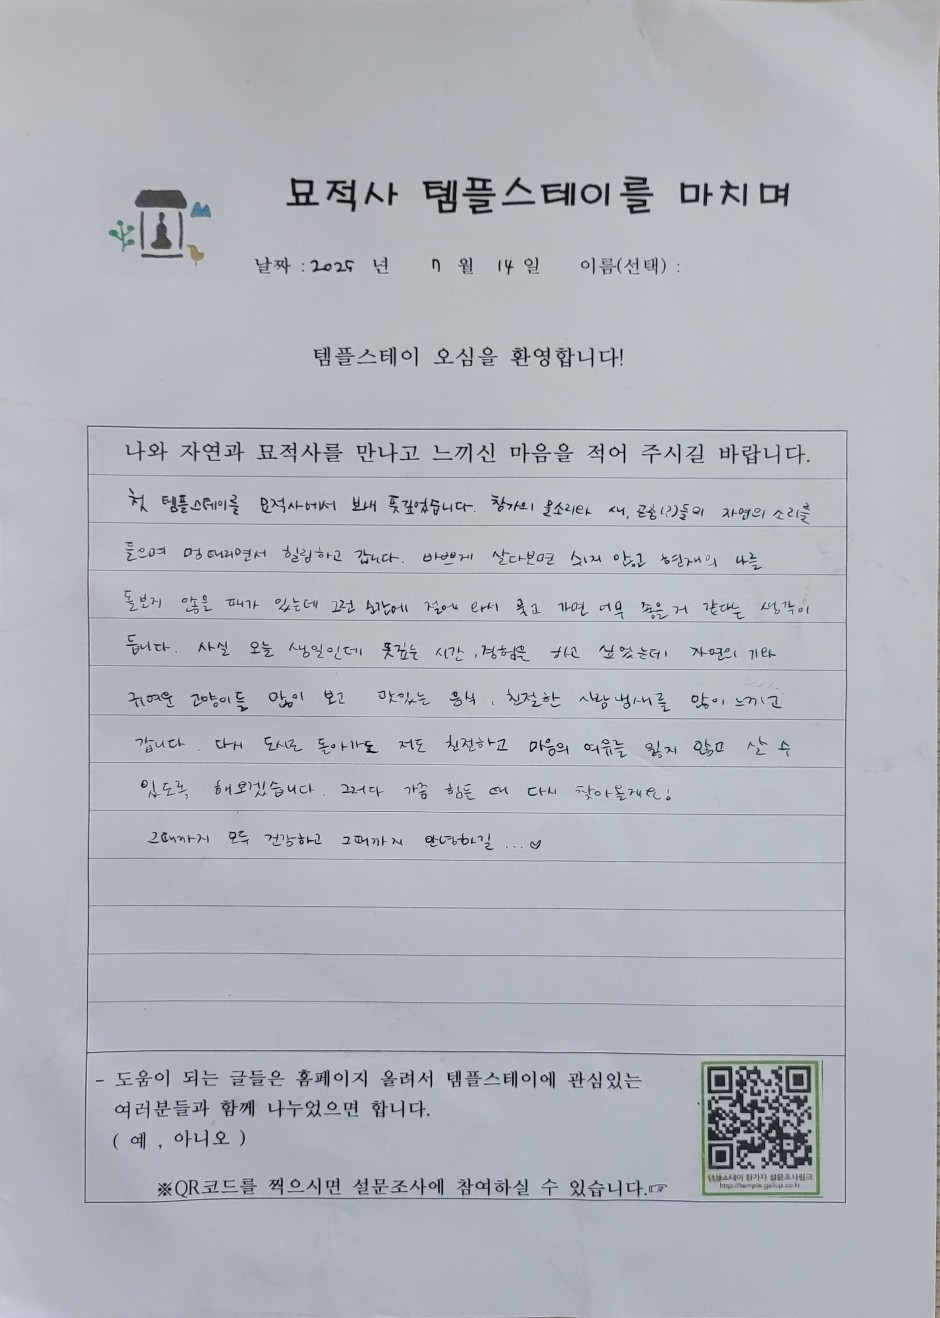 묘적사 템플스테이를 마치며
날짜 : 2025 년 7 월 14 일 이름(선택) :
템플스테이 오심을 환영합니다!
나와 자연과 묘적사를 만나고 느끼신 마음을 적어 주시길 바랍니다.
첫 템플스테이를 묘적사에서 보내 뜻깊었습니다. 창가의 물소리와 새, 곤충(?)들의 자연의 소리를
들으며 멍때리면서 힐링하고 갑니다. 바쁘게 살다보면 쉬지 않고 현재의 나를
돌보지 않을 때가 있는데 그런 순간에 절에 와서 쉬고 가면 너무 좋을 거 같다는 생각이
듭니다. 사실 오늘 생일인데 뜻깊은 시간, 경험을 하고 싶었는데 자연의 기와
귀여운 고양이들 많이 보고 맛있는 음식, 친절한 사람냄새를 많이 느끼고
갑니다. 다시 도시로 돌아가도 저도 친절하고 마음의 여유를 잃지 않고 살 수
있도록 해보겠습니다. 그러다 가끔 힘든 때 다시 찾아볼게요!
그때까지 모두 건강하고 그때까지 안녕하길 ... ♡
- 도움이 되는 글들은 홈페이지 올려서 템플스테이에 관심있는
여러분들과 함께 나누었으면 합니다.
( 예 , 아니오 )
※QR코드를 찍으시면 설문조사에 참여하실 수 있습니다.☞
템플스테이 참가자 설문조사링크
http://temple.gallup.co.kr